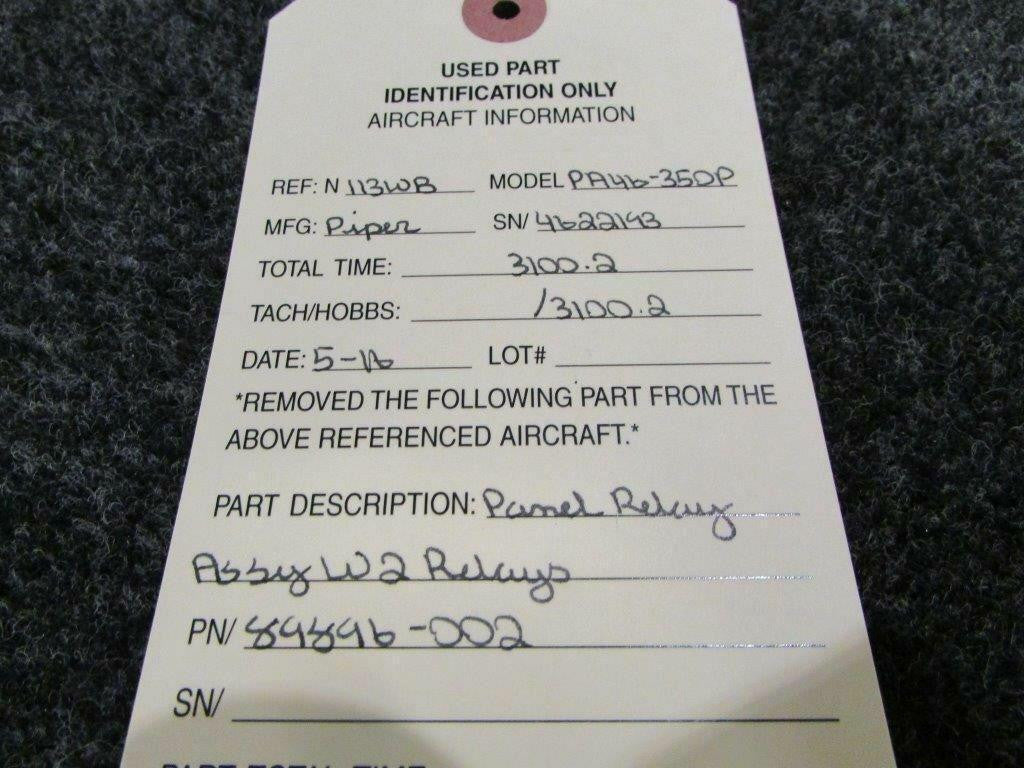 USED PART
IDENTIFICATION ONLY
AIRCRAFT INFORMATION
REF: N 113WB MODEL PA46-350P
MFG: Piper SN/ 4622193
TOTAL TIME: 3100.2
TACH/HOBBS: /3100.2
DATE: 5-16 LOT#
*REMOVED THE FOLLOWING PART FROM THE
ABOVE REFERENCED AIRCRAFT.*
PART DESCRIPTION: Panel Relay
Assy W 2 Relays
PN/ 89896-002
SN/
PART TOTAL TIME